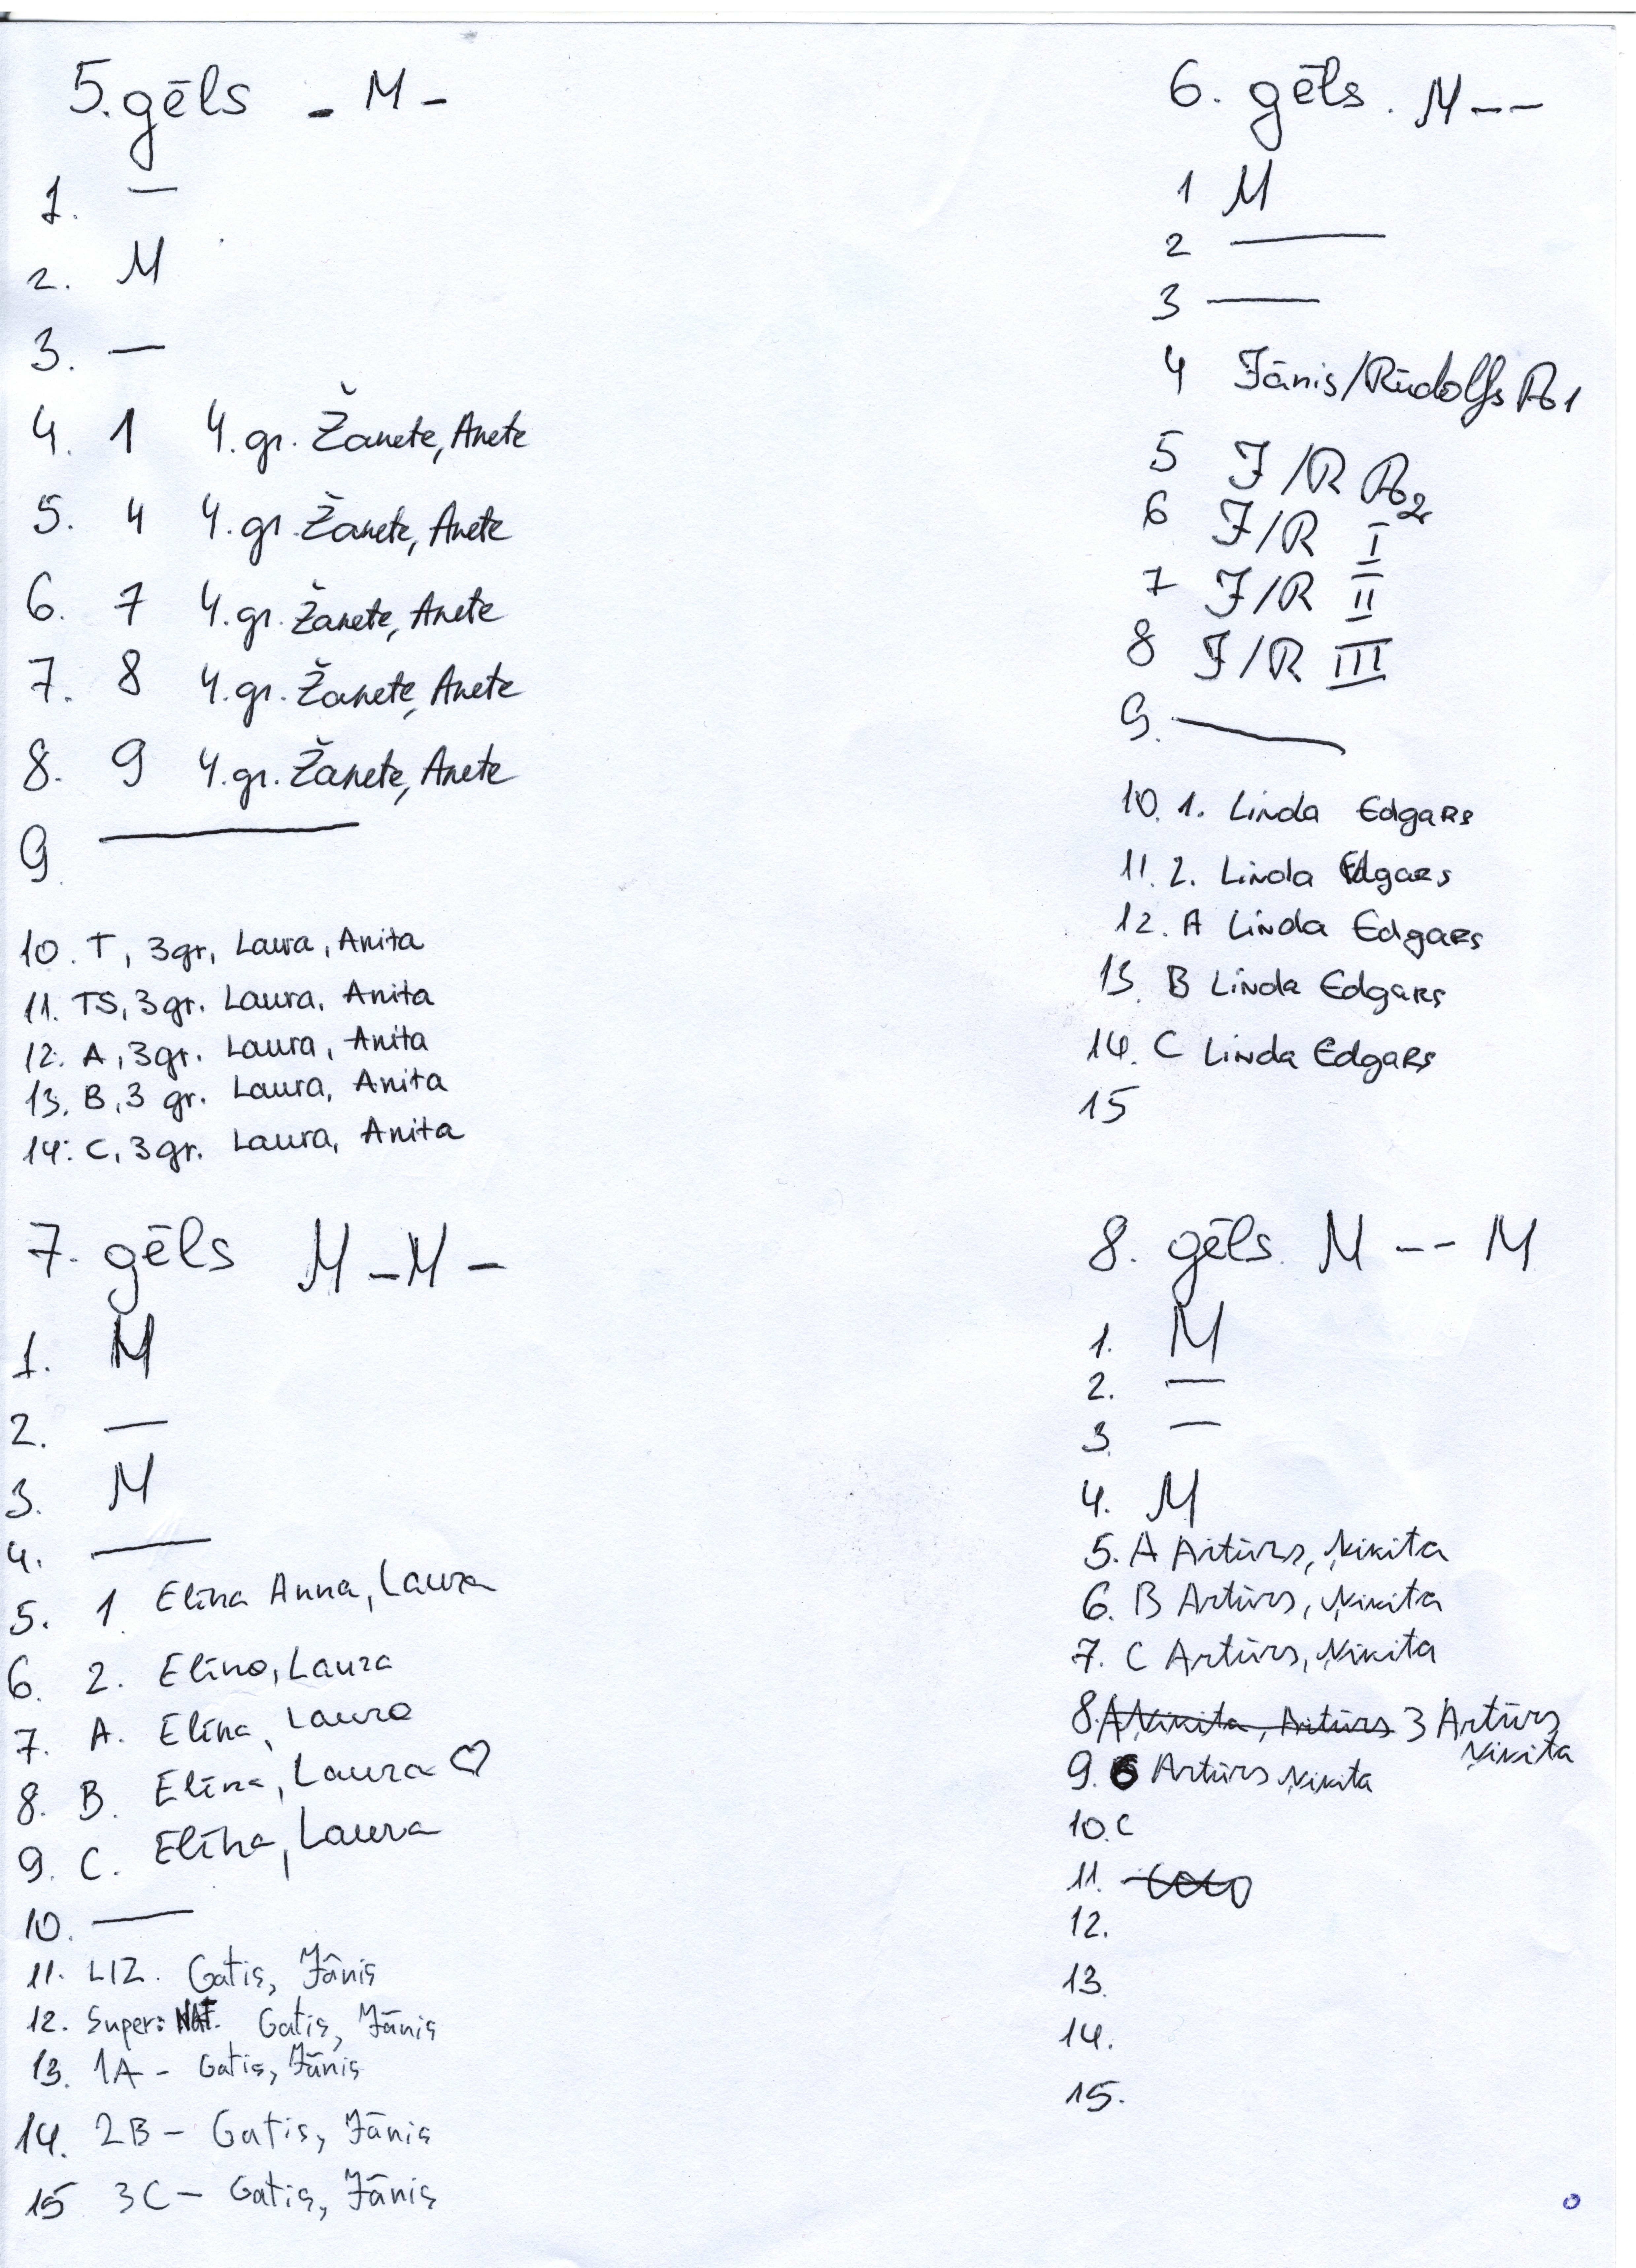 5. gēls - M -
1. —
2. M
3. —
4. 1 4. gr. Žanete, Anete
5. 4 4. gr. Žanete, Anete
6. 7 4. gr. Žanete, Anete
7. 8 4. gr. Žanete, Anete
8. 9 4. gr. Žanete, Anete
9 —
10. T, 3gr, Laura, Anita
11. TS, 3gr. Laura, Anita
12. A, 3gr. Laura, Anita
13. B, 3 gr. Laura, Anita
14. C, 3gr. Laura, Anita
6. gēls. M--
1 M
2 —
3 —
4 Jānis/Rūdolfs P1
5 J/R P2
6 J/R I
7 J/R II
8 J/R III
9. —
10. 1. Linda Edgars
11. 2. Linda Edgars
12. A Linda Edgars
13. B Linda Edgars
14. C Linda Edgars
15
7. gēls M-M-
1. M
2. —
3. M
4. —
5. 1 Elīna Anna, Laura
6. 2. Elīna, Laura
7. A. Elīna, Laura
8. B. Elīna, Laura ♡
9. C. Elīna, Laura
10. —
11. LIZ. Gatis, Jānis
12. Super: NAT. Gatis, Jānis
13. 1A - Gatis, Jānis
14. 2B - Gatis, Jānis
15 3C - Gatis, Jānis
8. gēls. M -- M
1. M
2. —
3. —
4. M
5. A Artūrs, Ņikita
6. B Artūrs, Ņikita
7. C Artūrs, Ņikita
8. A Ņikita, Artūrs 3 Artūrs
Ņikita
9. 6 Artūrs Ņikita
10. C
11.
12.
13.
14.
15.